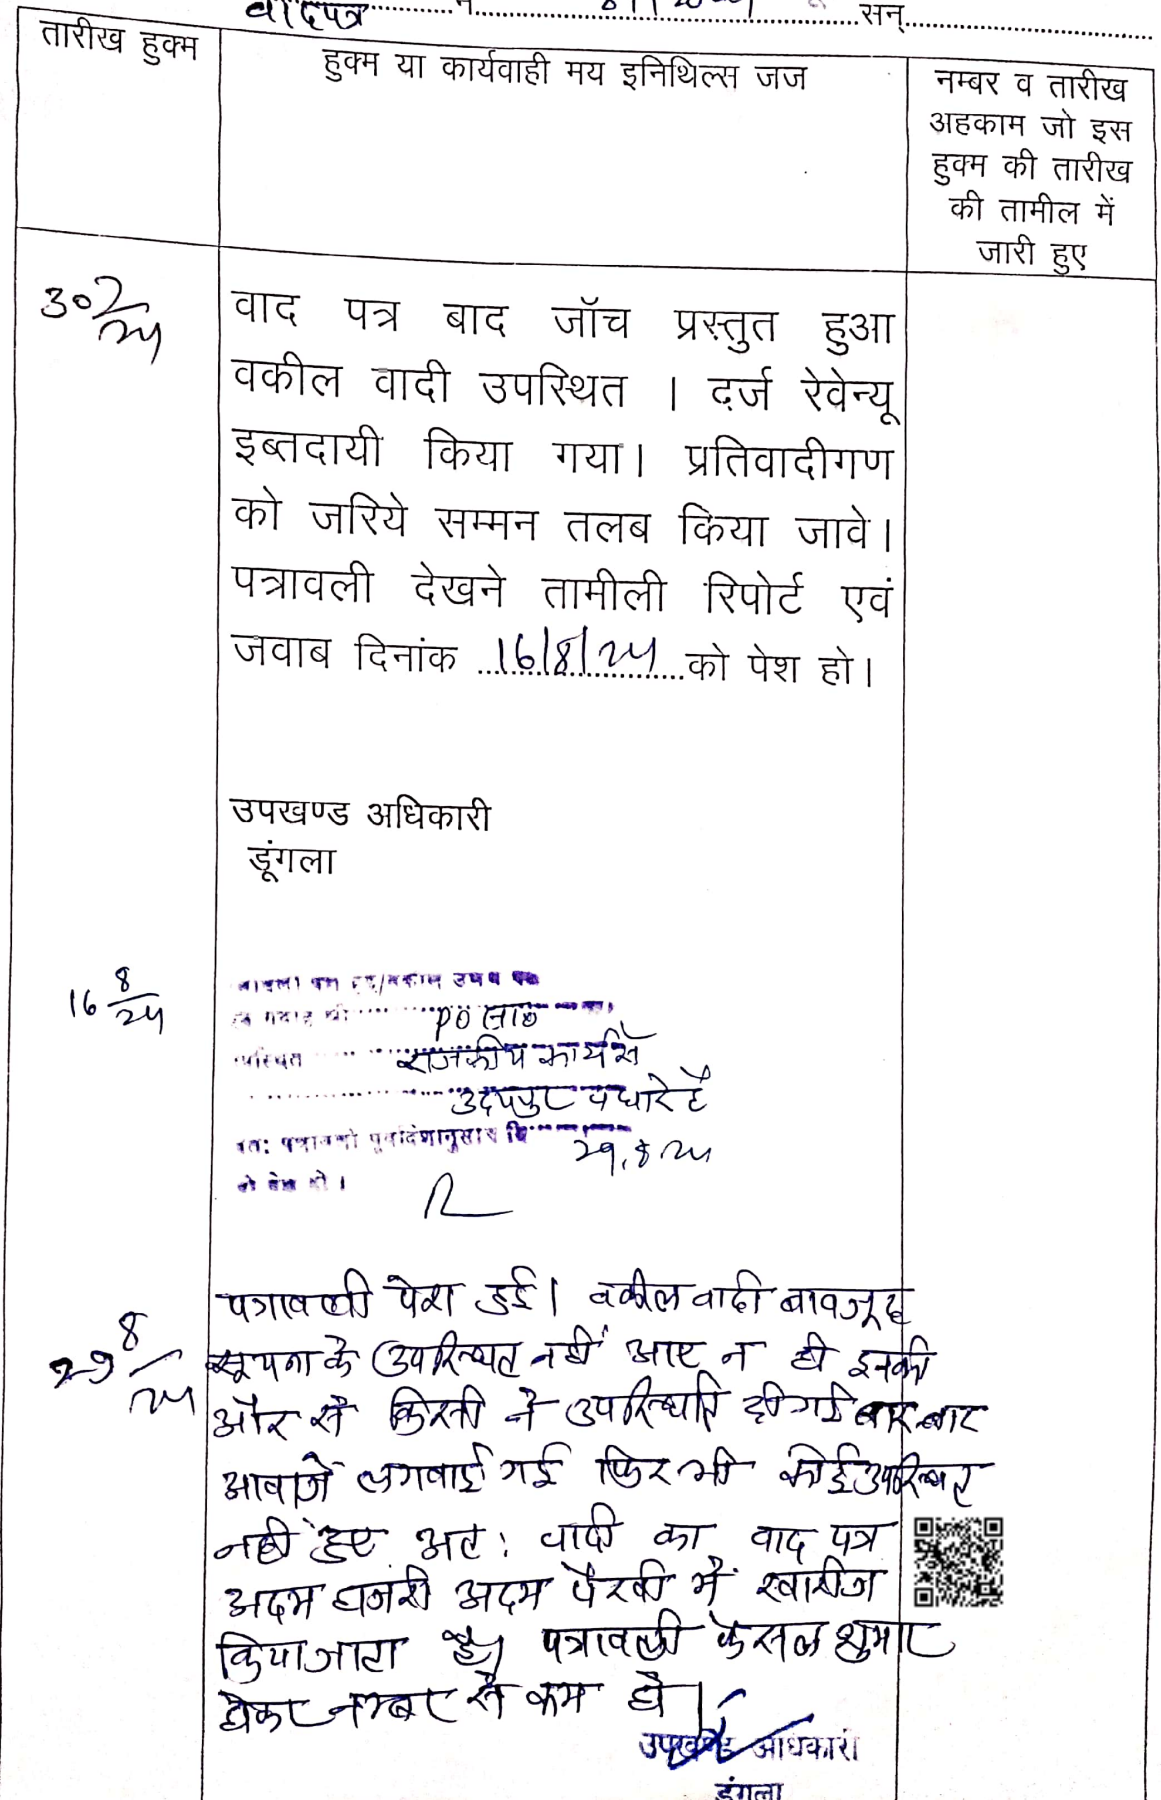 वादपत्र सन्
तारीख हुक्म
हुक्म या कार्यवाही मय इनिथिल्स जज
नम्बर व तारीख
अहकाम जो इस
हुक्म की तारीख
की तामील में
जारी हुए
30/7/24
वाद पत्र बाद जॉच प्रस्तुत हुआ
वकील वादी उपस्थित । दर्ज रेवेन्यू
इब्तदायी किया गया। प्रतिवादीगण
को जरिये सम्मन तलब किया जावे।
पत्रावली देखने तामीली रिपोर्ट एवं
जवाब दिनांक 16/8/24 को पेश हो।
उपखण्ड अधिकारी
डूंगला
16/8/24
PO सा०
राजकीय कार्य से
उदयपुर पधारे है
अतः पत्रावली पूर्वादेशानुसार दि 29.8.24
को पेश हो ।
29/8/24
पत्रावली पेश हुई। वकील वादी बावजूद
सूचना के उपस्थित नहीं आए न ही इनकी
और से किसी ने उपस्थिति दी गई बार बार
आवाजें लगवाई गई फिर भी कोई उपस्थित
नहीं हुए अत: वादी का वाद पत्र
अदम हाजरी अदम पैरवी में खारीज
किया जाता है। पत्रावली फैसल शुमार
होकर नम्बर से कम हो।
उपखण्ड अधिकारी
डूंगला